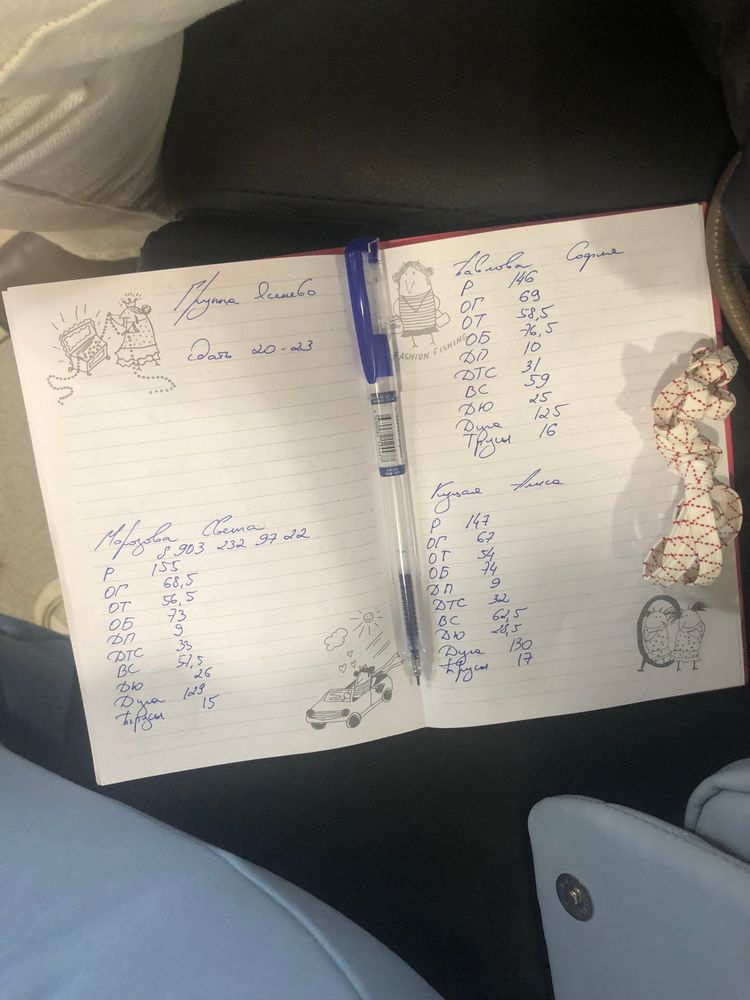 Группа Ясенево
сдать 20-23
Морозова Света
8 903 232 97 22
Р 155
ОГ 68,5
ОТ 56,5
ОБ 73
ДП 9
ДТС 33
ВС 51,5
ДЮ 26
Дуга 129
Трусы 15
FASHION FISHING
Павлова Софья
Р 146
ОГ 69
ОТ 58,5
ОБ 76,5
ДП 10
ДТС 31
ВС 59
ДЮ 25
Дуга 125
Трусы 16
Куцая Алиса
Р 147
ОГ 67
ОТ 54
ОБ 74
ДП 9
ДТС 32
ВС 62,5
ДЮ 28,5
Дуга 130
Трусы 17